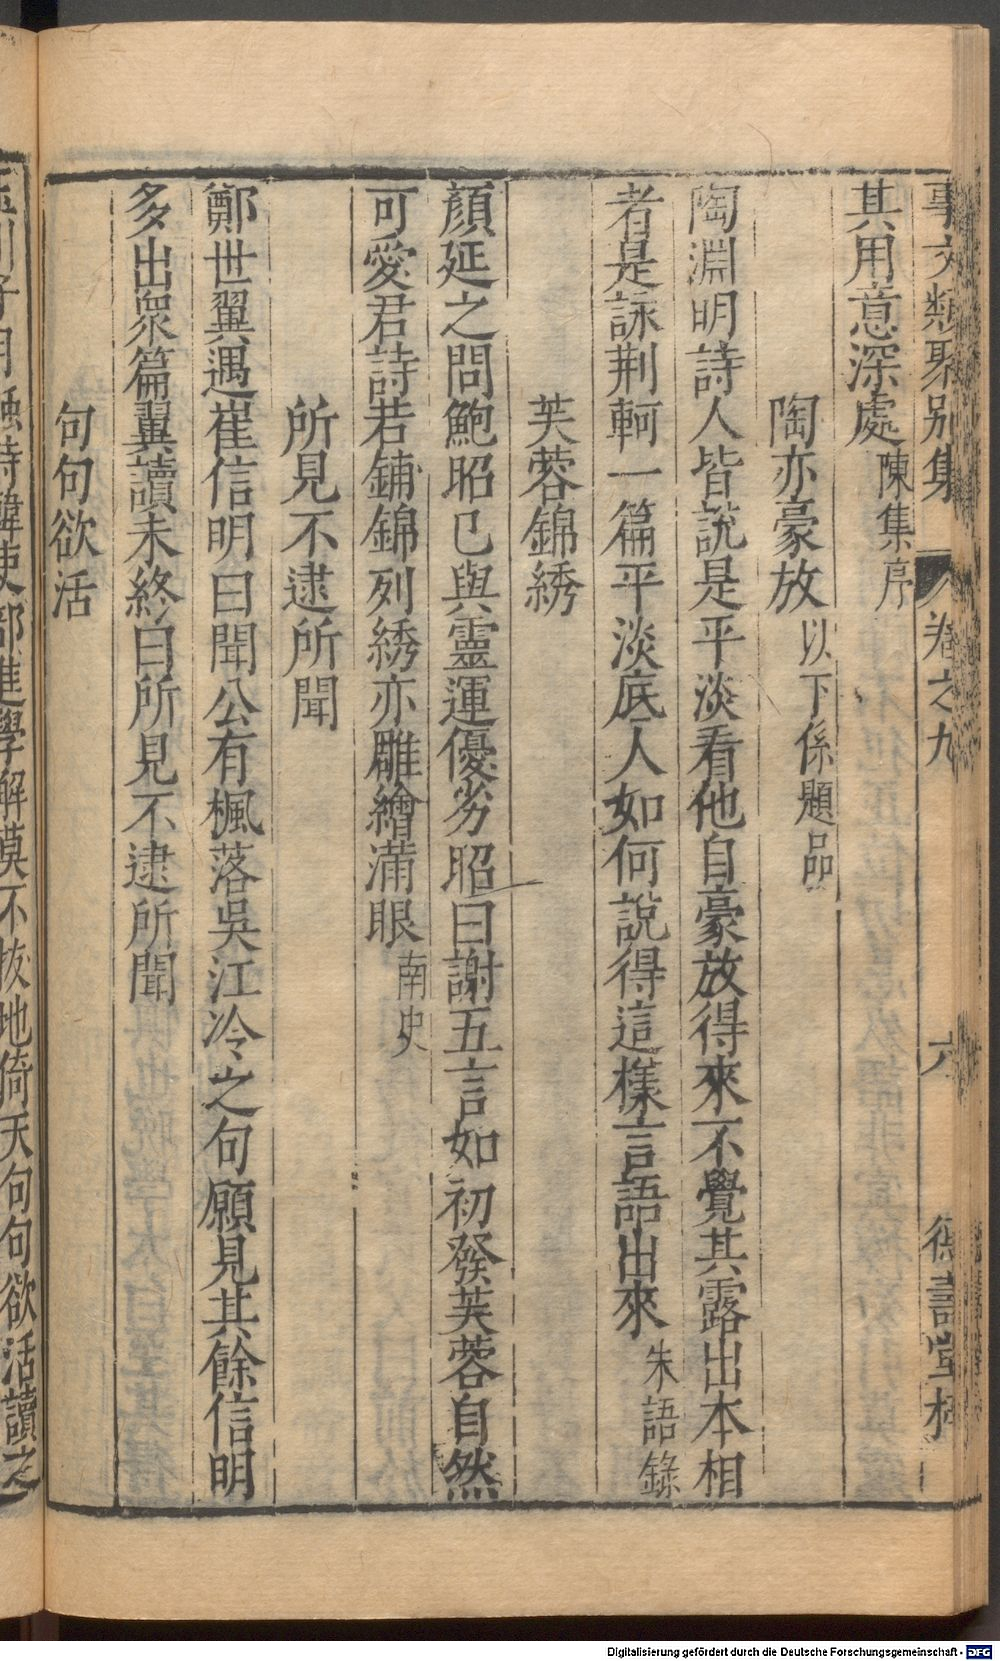 事文類聚別集 卷之九 六 德壽堂梓
其用意深處 陳集序
陶亦豪放 以下係題品
陶淵明詩人皆說是平淡看他自豪放得來不覺其露出本相
者是詠荆軻一篇平淡底人如何說得這樣言語出來 朱語錄
芙蓉錦綉
顏延之問鮑昭已與靈運優劣昭曰謝五言如初發芙蓉自然
可愛君詩若鋪錦列綉亦雕繪滿眼 南史
所見不逮所聞
鄭世翼遇崔信明曰聞公有楓落吳江冷之句願見其餘信明
多出衆篇翼讀未終曰所見不逮所聞
句句欲活
融詩韓吏部進學解莫不拔地倚天句句欲活讀之
Digitalisierung gefördert durch die Deutsche Forschungsgemeinschaft - DFG